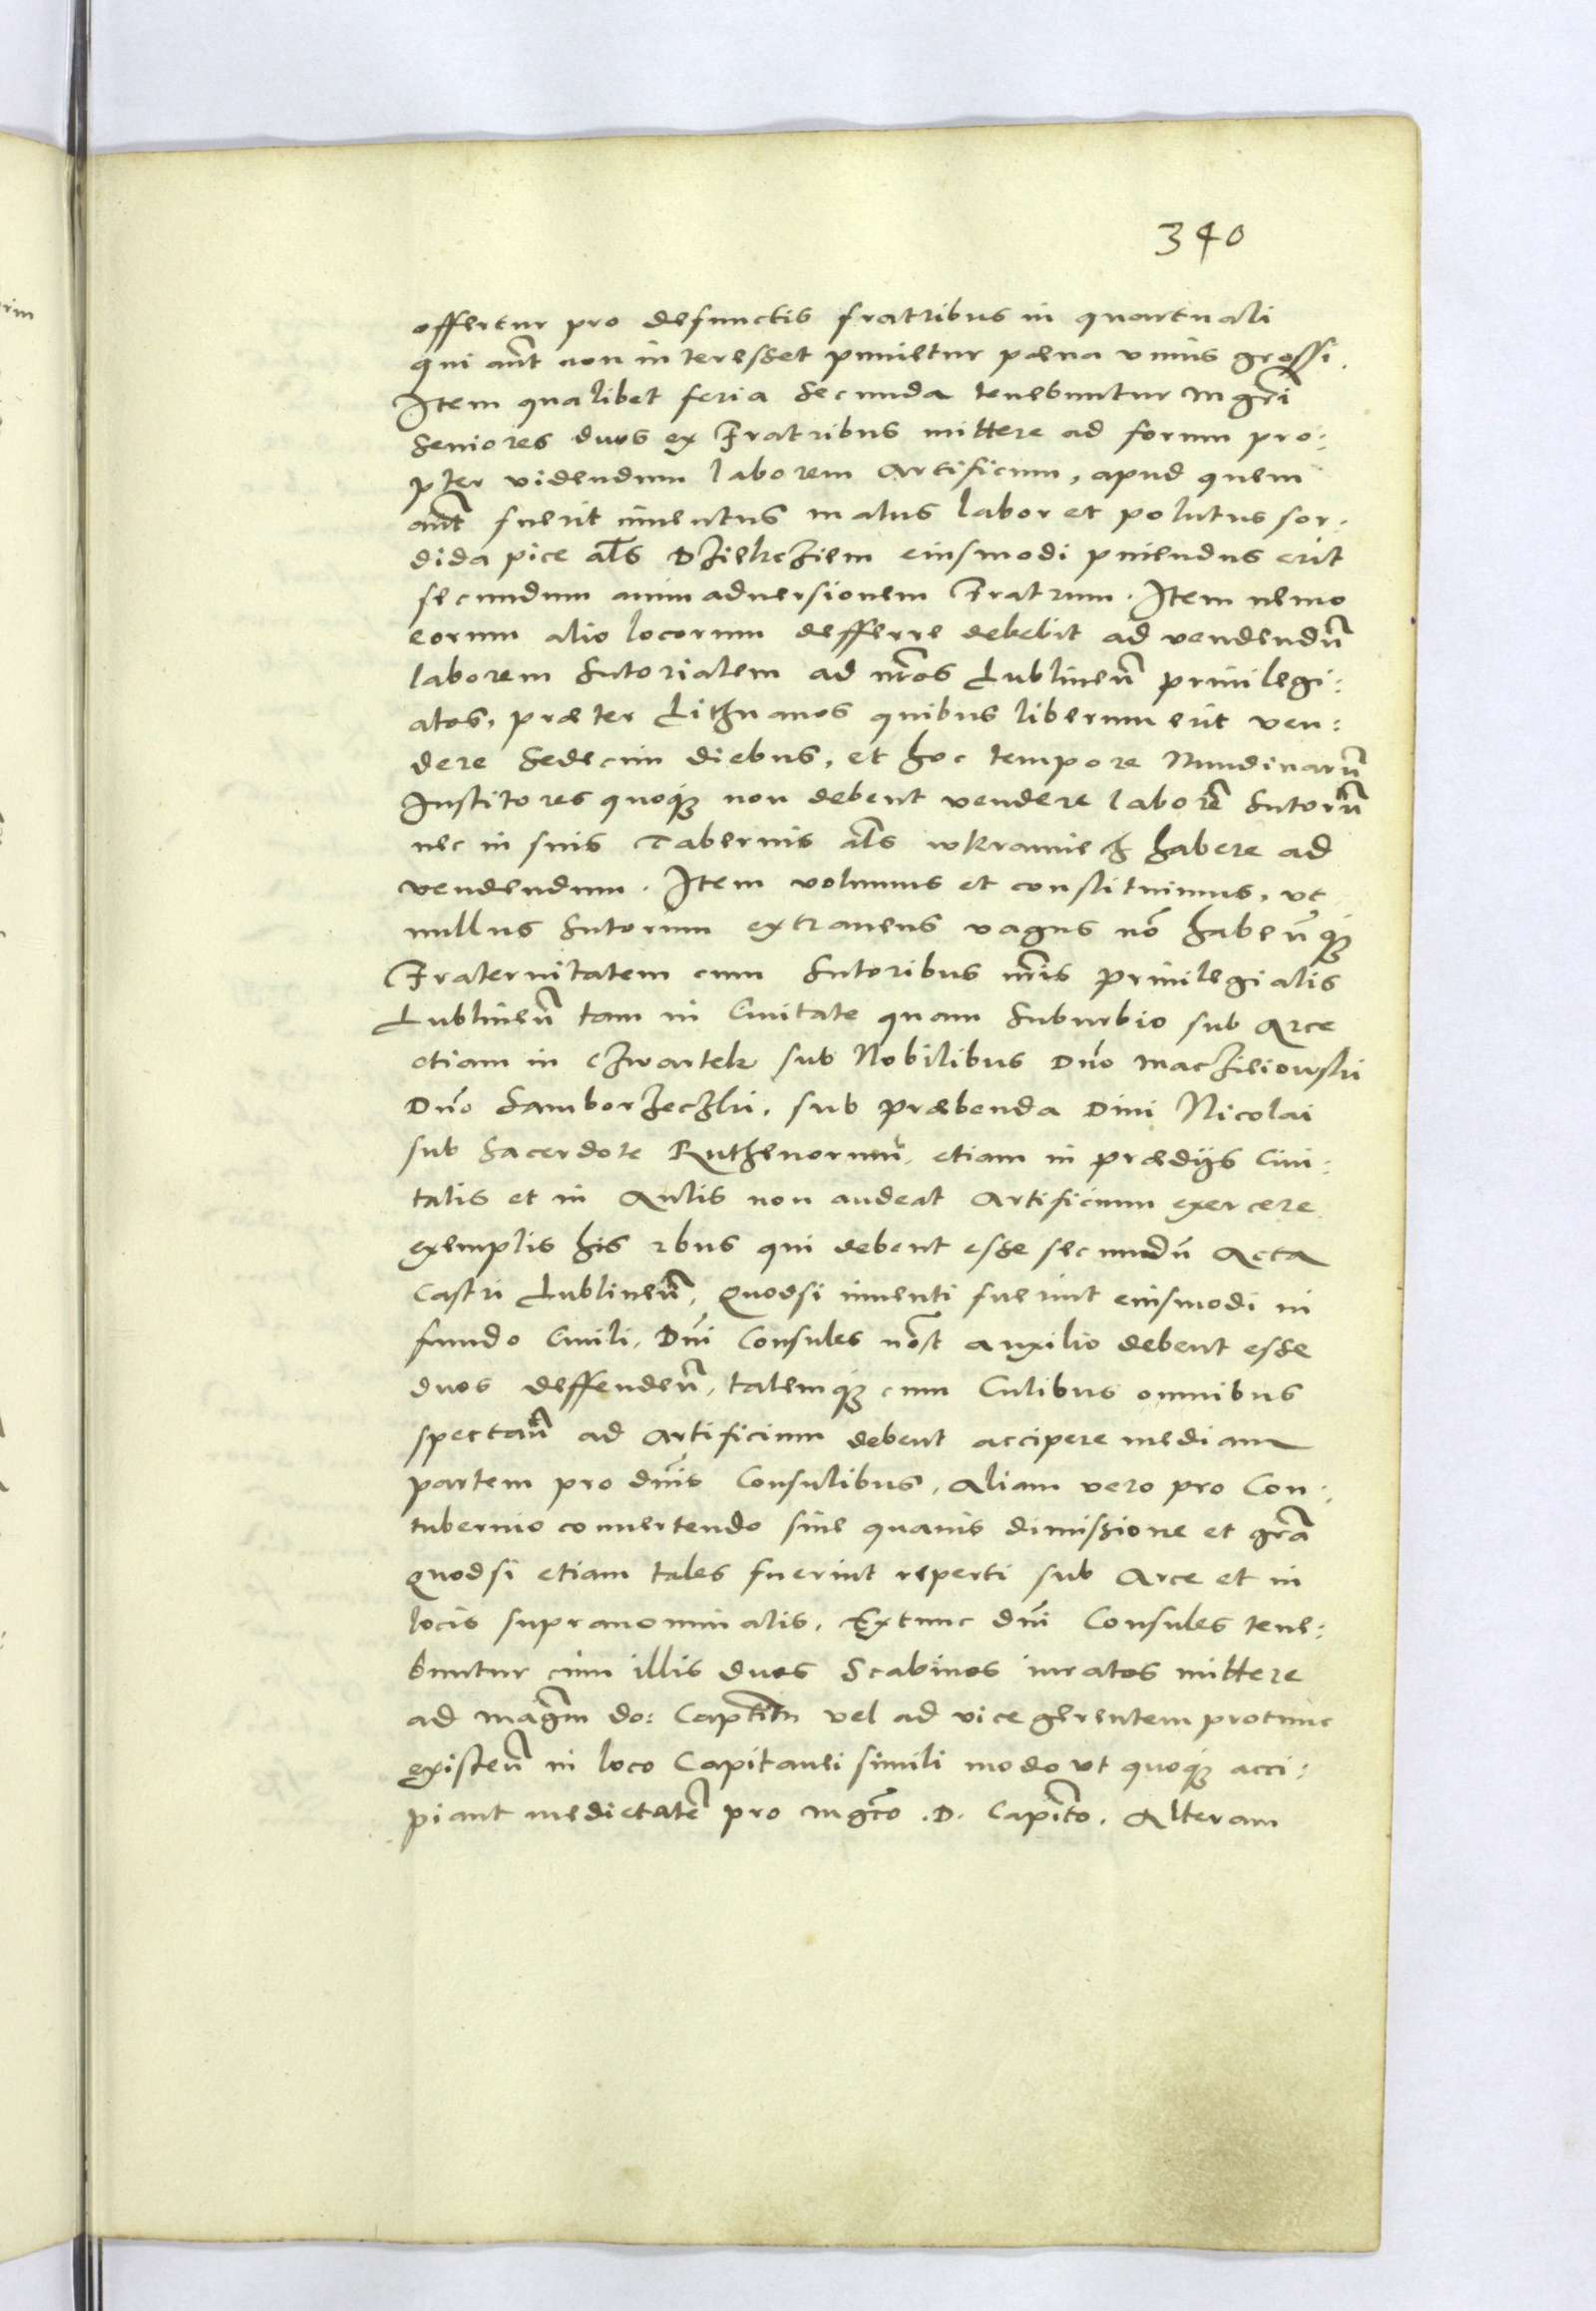 340
offertur pro defunctis fratribus in quartuali
qui aūt non interesset punietur pæna vnius grossi.
Item qualibet feria Secunda tenebuntur Mgrī
Seniores duos ex Fratribus mittere ad forum pro:
pter videndum laborem Artificum, apud quem
aūt fuerit inuentus malus labor et polutus sor:
dida pice als Dziekcziem eiusmodi puiendus erit
secundum animaduersionem Fratrum. Item nemo
eorum alio locorum defferre debebit ad vendendū
laborem Sutorialem ad nros Lublineñ priuilegi:
atos, præter Lithuanos quibus liberum erit ven:
dere Sedecim diebus, et hoc tempore Nundinarū
Institores quoqȝ non debent vendere laborē Sutorū
nec in suis Tabernis als wkramiech habere ad
vendendum. Item volumus et constituimus, vt
nullus Sutorum extraneus vagus nō habeñqȝ
Fraternitatem cum Sutoribus nris priuilegiatis
Lublineñ tam in Ciuitate quam Suburbio sub Arce
etiam in Czwartek sub Nobilibus Dno Maczieiowski
Dno Samborzeczki, sub præbenda Diui Nicolai
sub Sacerdote Ruthenorum, etiam in prædijs Ciui:
tatis et in Aulis non audeat Artificium exercere
exemptis his rbus qui debent esse secundū Acta
Castri Lublineñ, Quodsi inuenti fuerint eiusmodi in
fundo Ciuili, Dni Consules nost auxilio debent esse
duos deffendeñ, talemqȝ cum Cutibus omnibus
spectañ ad Artificium debent accipere mediam
partem pro dnis Consulibus, Aliam vero pro Con:
tubernio conuertendo sine quauis dimissione et grā
Quodsi etiam tales fuerint reperti sub Arce et in
locis supranominatis, Extunc dni Consules tene:
buntur cum illis duos Scabinos iuratos mittere
ad Magm do: Captm vel ad vicegerentem protunc
existeñ in loco Capitanei simili modo vt quoqȝ acci:
piant medietatē pro Mgco .D. Capito, Alteram